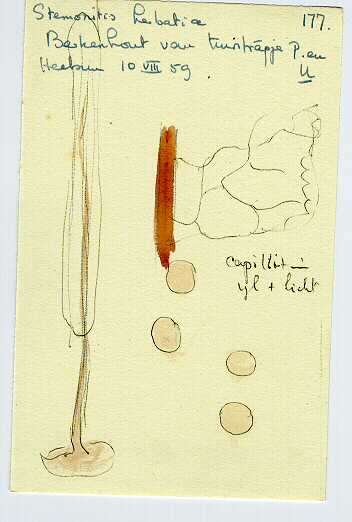 Stemonitis herbatica 177.
Berkenhout van tuintrapje P. en
Heelsum 10 VIII 59. U
capillit
ijl + licht